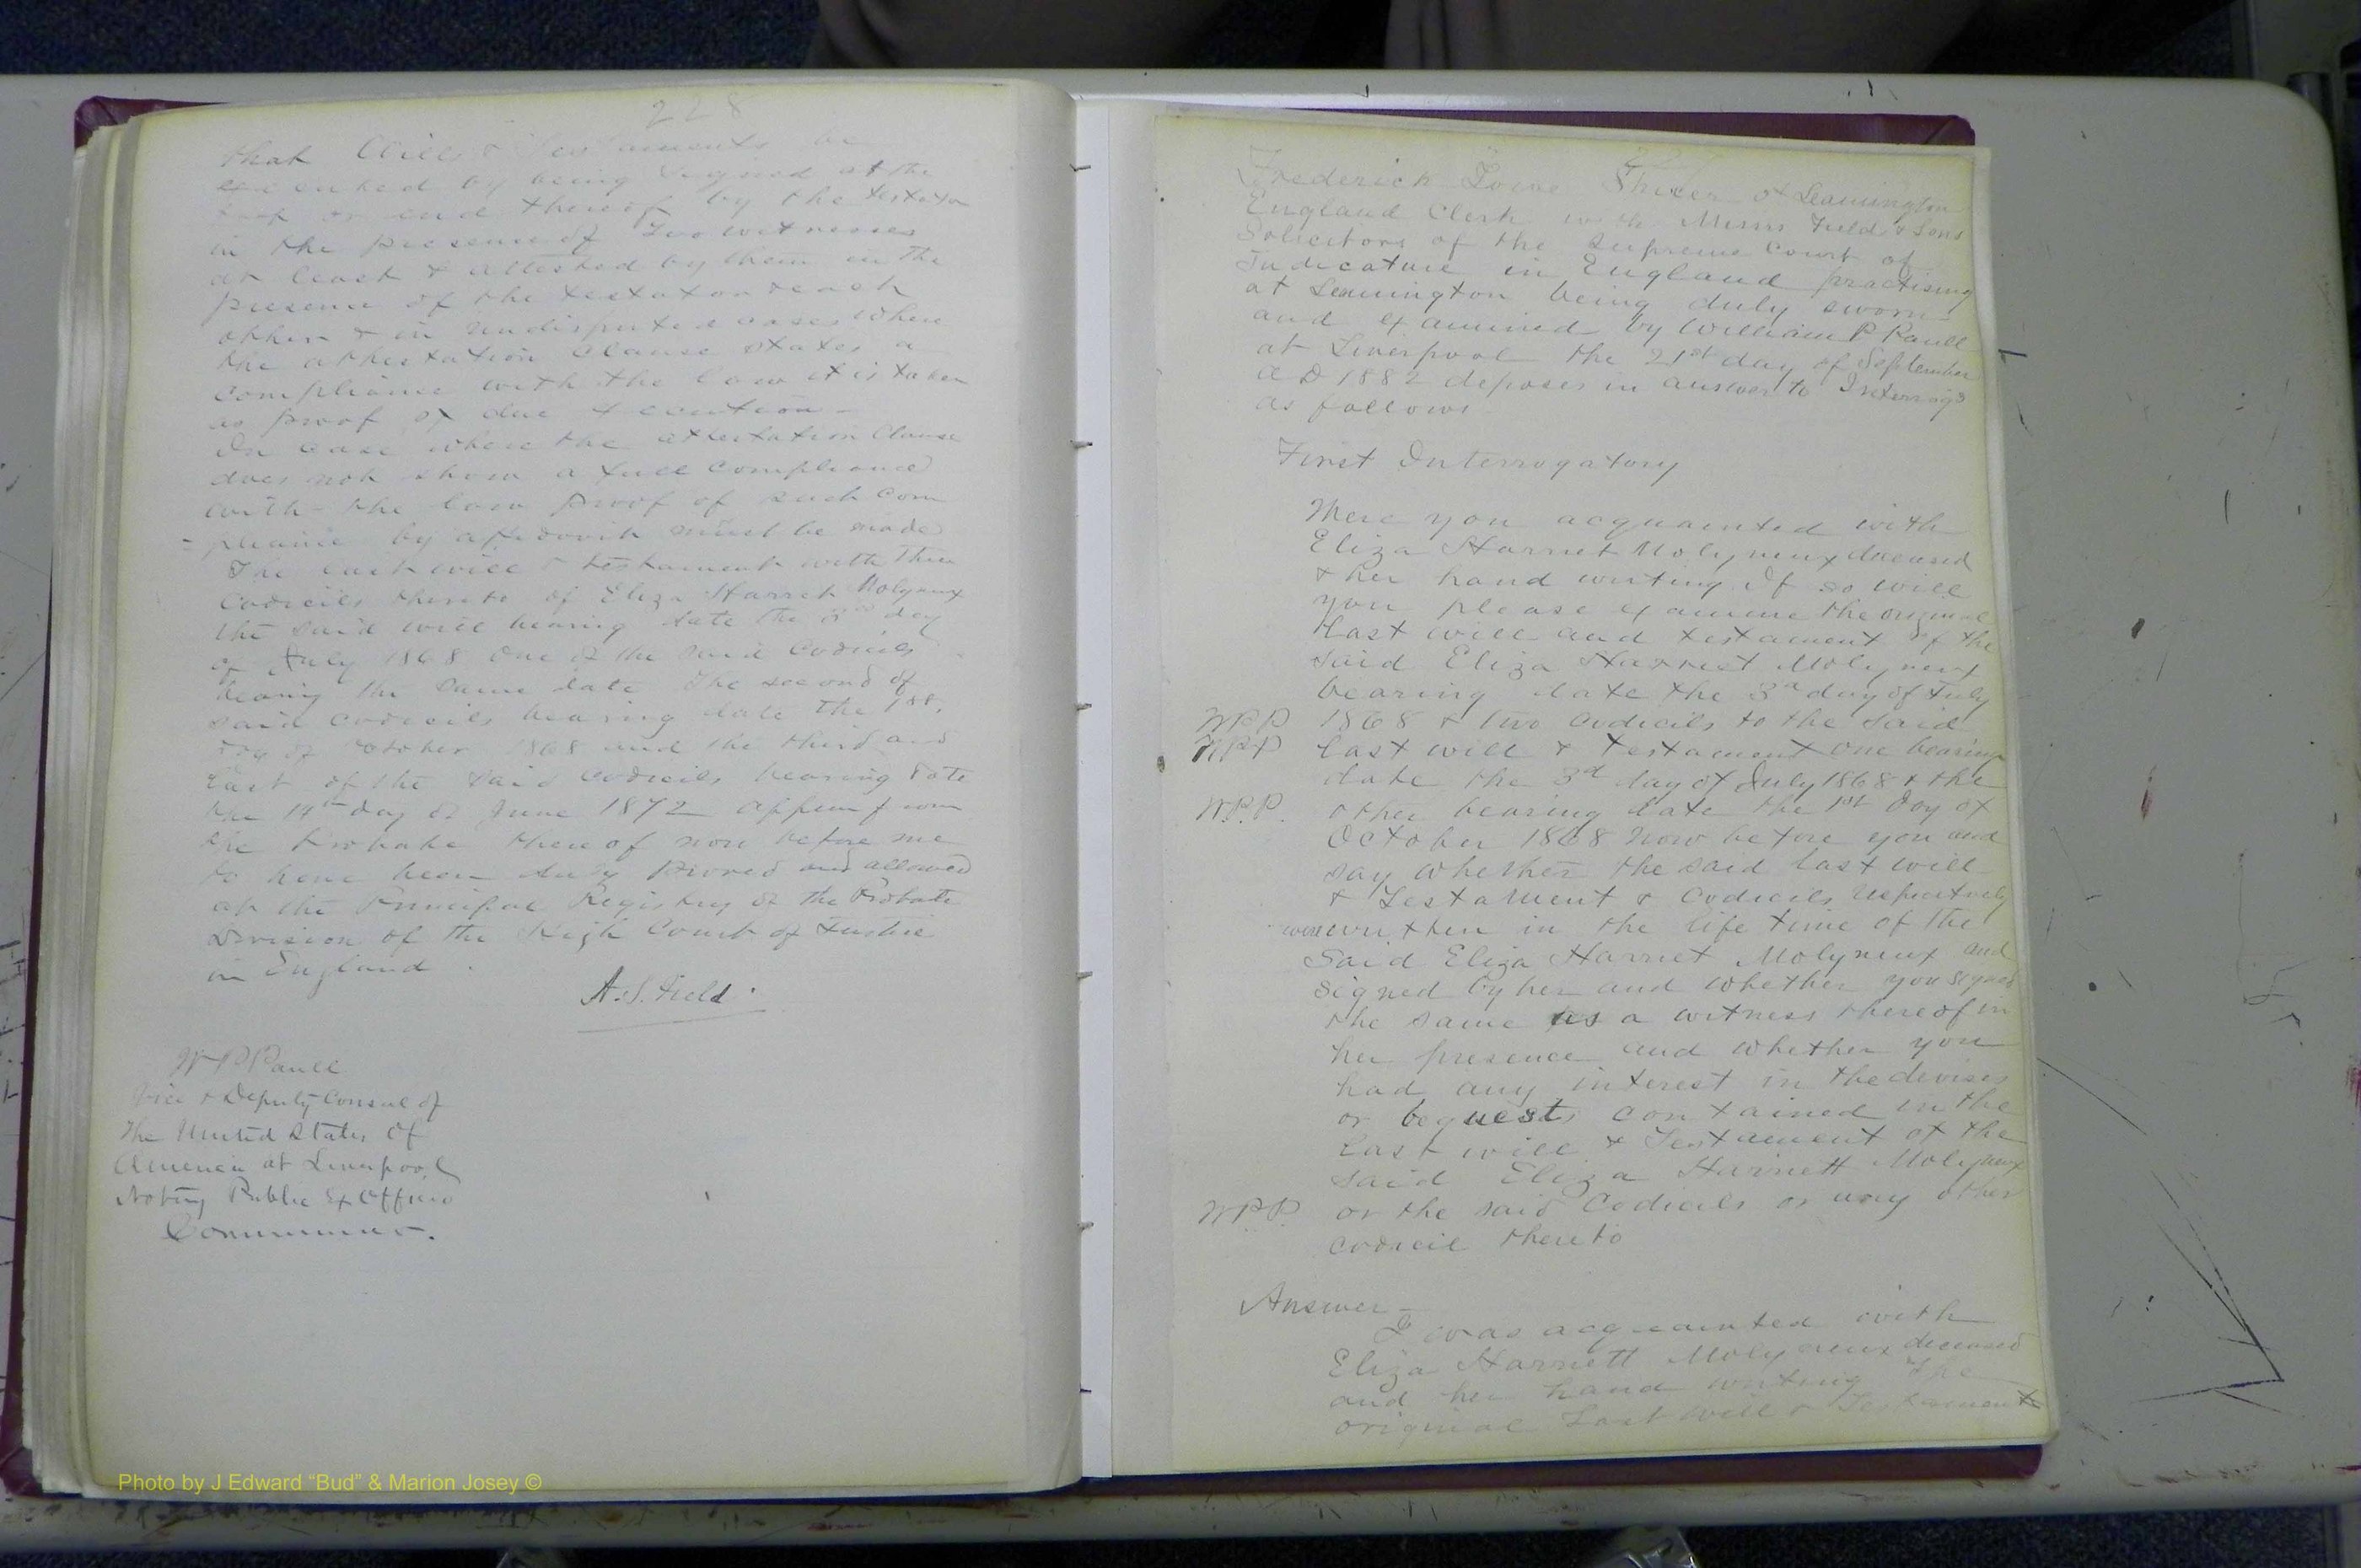 228
that Wills & Testaments be
executed by being signed at the
foot or end thereof by the testator
in the presence of Two witnesses
at least & attested by them in the
presence of the testator & each
other & in undisputed cases where
the attestation Clause states a
compliance with the law it is taken
as proof of due execution -
In case where the attestation Clause
does not show a full compliance
with the law proof of such com
= pliance by affidavit must be made
The last will & testament with three
Codicils thereto of Eliza Harriet Molyneux
the said will bearing date the 3rd day
of July 1868 One of the said Codicils
bearing the same date The second of
said Codicils bearing date the 1st.
day of October 1868 and the third and
last of the said Codicils bearing date
the 14th day of June 1872 appear from
the Probate thereof now before me
to have been duly proved and allowed
at the Principal Registry of the Probate
Division of the High Court of Justice
in England.
A. S. Field.
W P Paull
Vice & Deputy Consul of
the United States of
America at Liverpool
Notary Public Ex Officio
Commissioner.
Frederick Spicer of Leamington
England Clerk with Messrs Field & Sons
Solicitors of the Supreme Court of
Judicature in England practising
at Leamington being duly sworn
and examined by William P Paull
at Liverpool the 21st day of September
A D 1882 deposes in answer to Interrogs
as follows
First Interrogatory
Were you acquainted with
Eliza Harriet Molyneux deceased
& her hand writing If so will
you please examine the original
last will and testament of the
said Eliza Harriet Molyneux
bearing date the 3d day of July
W.P.P. 1868 & two codicils to the said
W.P.P. last will & testament one bearing
date the 3d day of July 1868 & the
W.P.P. other bearing date the 1st day of
October 1868 now before you and
say whether the said last will
& Testament & Codicils respectively
were written in the life time of the
Said Eliza Harriet Molyneux and
signed by her and whether you signed
the same as a witness thereof in
her presence and whether you
had any interest in the devises
or bequests contained in the
Last will & Testament of the
said Eliza Harriett Molyneux
W.P.P. or the said Codicils or any other
codicil thereto
Answer -
I was acquainted with
Eliza Harriett Molyneux deceased
and her hand writing The
original Last will & Testament
Photo by J Edward “Bud” & Marion Josey ©